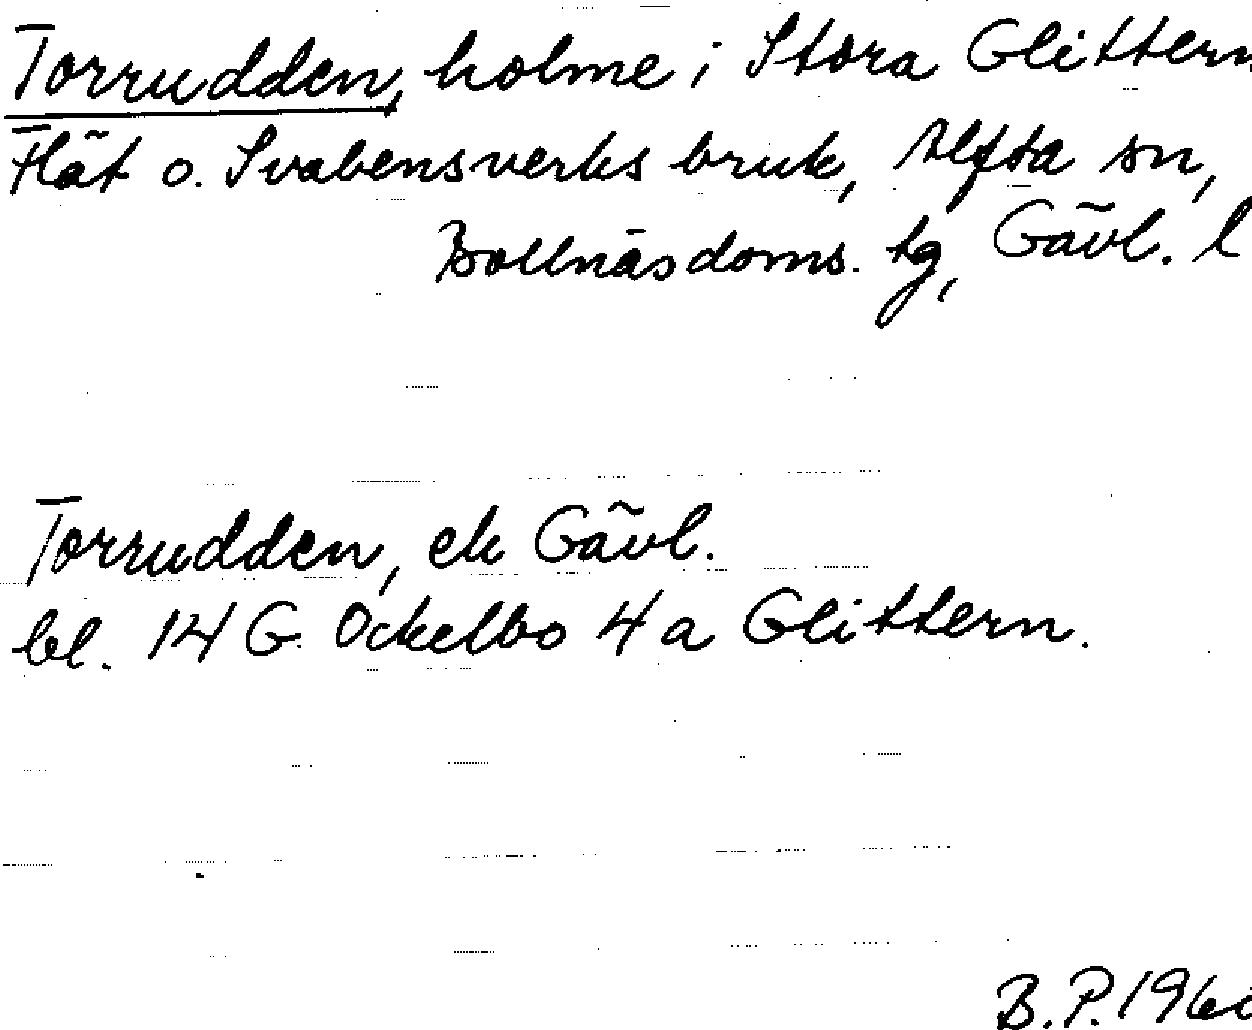 Torrudden, holme i Stora Glittern
Flät o. Svabensverks bruk, Alfta sn,
Bollnäs doms. tg, Gävl. l
Torrudden, ek Gävl.
bl. 14 G. Ockelbo 4 a Glittern.
B.P. 196